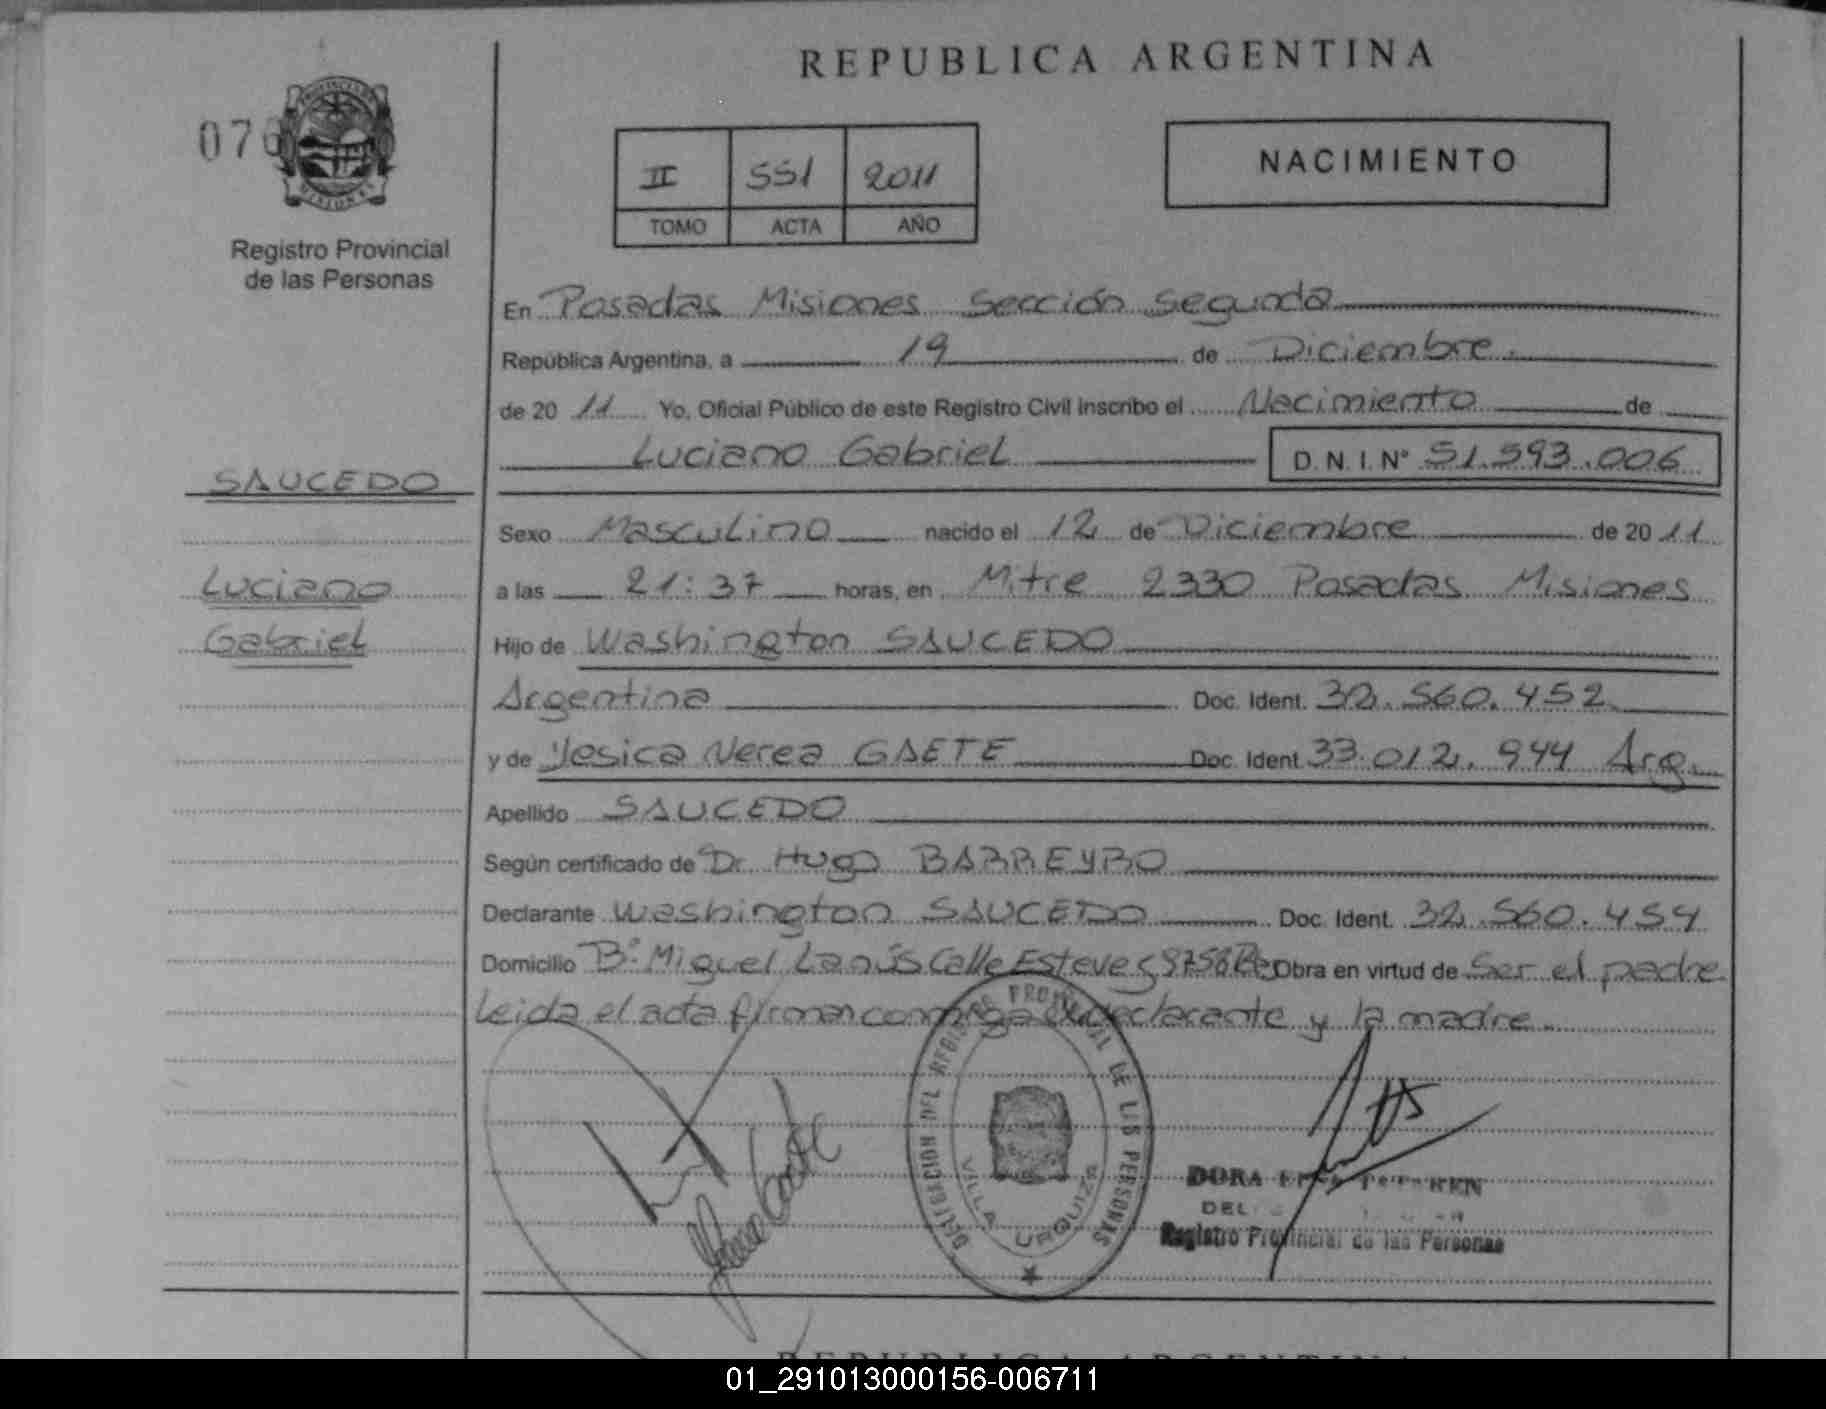 REPUBLICA ARGENTINA
076
PROVINCIA DE
MISIONES
Registro Provincial
de las Personas
II 551 2011
TOMO ACTA AÑO
NACIMIENTO
En Posadas Misiones Sección Segunda
República Argentina, a 19 de Diciembre
de 20 11 Yo, Oficial Público de este Registro Civil inscribo el Nacimiento de
Luciano Gabriel D.N.I.Nº 51.593.006
SAUCEDO
Sexo Masculino nacido el 12 de Diciembre de 20 11
Luciano
Gabriel
a las 21:37 horas, en Mitre 2330 Posadas Misiones
Hijo de Washington SAUCEDO
Argentina Doc. Ident. 32.560.452
y de Yesica Nerea GAETE Doc. Ident. 33.012.944 Arg.
Apellido SAUCEDO
Según certificado de Dr. Hugo BARREYRO
Declarante Washington SAUCEDO Doc. Ident. 32.560.454
Domicilio Bº Miguel Lanús Calle Esteves Obra en virtud de Ser el padre
Leida el acta firman conmigo el declarante y la madre.
DELEGACION DEL REGISTRO PROVINCIAL DE LAS PERSONAS
VILLA URQUIZA
DORA
DEL
Registro Provincial de las Personas
REPUBLICA ARGENTINA
01_291013000156-006711